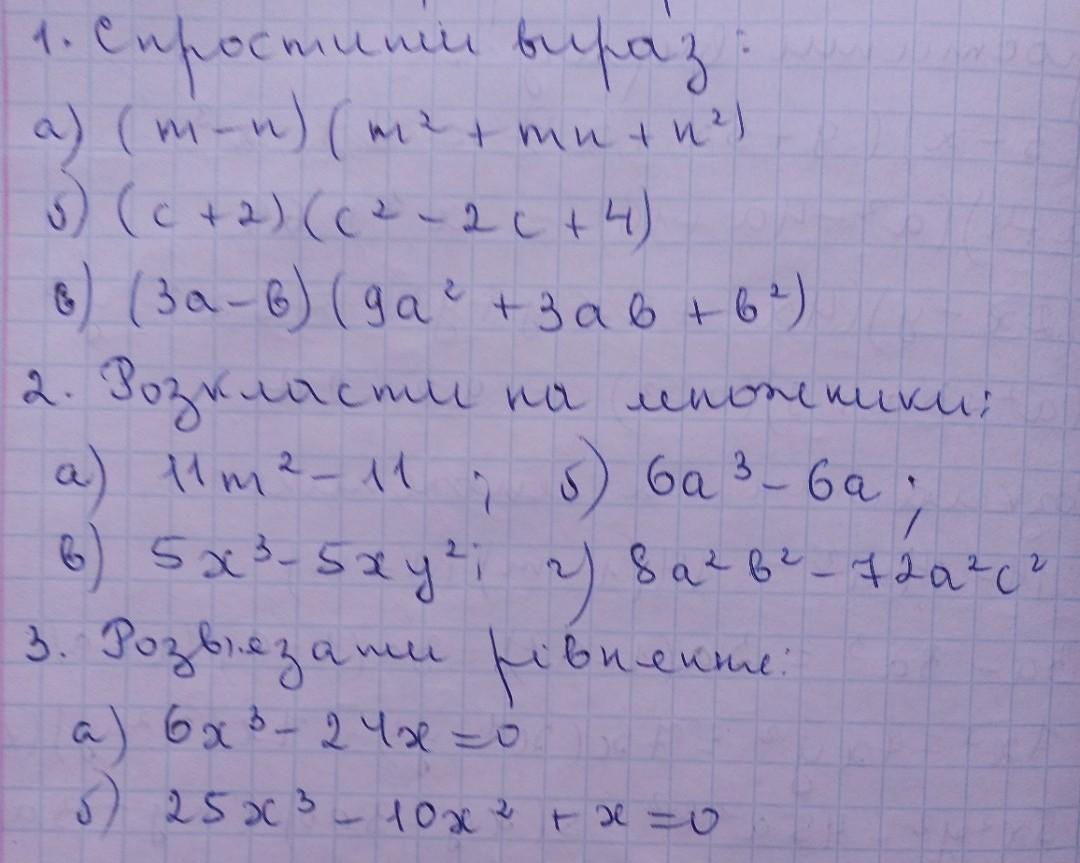 1. Спростити вираз:
а) (m - n) (m² + mn + n²)
б) (c + 2) (c² - 2c + 4)
в) (3a - b) (9a² + 3ab + b²)
2. Розкласти на множники:
а) 11m² - 11 ; б) 6a³ - 6a ;
в) 5x³ - 5xy² ; г) 8a²b² - 72a²c²
3. Розв'язати рівняння:
а) 6x³ - 24x = 0
б) 25x³ - 10x² + x = 0